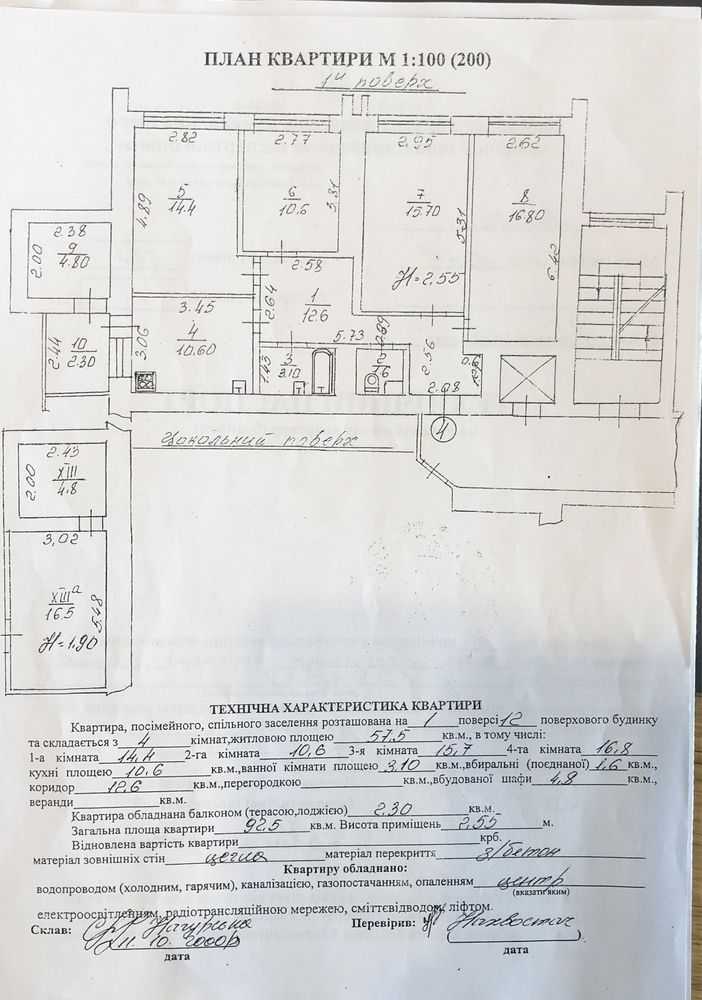 ПЛАН КВАРТИРИ М 1:100 (200)
1й поверх
2.82
2.77
2.95
2.62
5
14.4
4.89
6
10.6
3.81
7
15.70
5.31
8
16.80
6.42
2.38
9
4.80
2.00
2.58
H=2.55
1
12.6
2.64
3.45
4
10.60
3.06
5.73
10
2.30
2.44
3
3.10
1.43
2
1.6
2.56
2.08
4
Цокольний поверх
2.43
XIII
4.8
2.00
3,02
XIIIа
16.5
5.48
H=1.90
ТЕХНІЧНА ХАРАКТЕРИСТИКА КВАРТИРИ
Квартира, посімейного, спільного заселення розташована на 1 поверсі 12 поверхового будинку
та складається з 4 кімнат,житловою площею 57,5 кв.м., в тому числі:
1-а кімната 14.4 2-га кімната 10,6 3-я кімната 15,7 4-та кімната 16,8
кухні площею 10.6 кв.м.,ванної кімнати площею 3,10 кв.м.,вбиральні (поєднаної) 1,6 кв.м.,
коридор 12.6 кв.м.,перегородкою кв.м.,вбудованої шафи 4,8 кв.м.,
веранди кв.м.
Квартира обладнана балконом (терасою,лоджією) 2.30 кв.м.
Загальна площа квартири 92.5 кв.м. Висота приміщень 2,55 м.
Відновлена вартість квартири крб.
матеріал зовнішніх стін цегла матеріал перекриття з/бетон
Квартиру обладнано:
водопроводом (холодним, гарячим), каналізацією, газопостачанням, опаленням центр
(вказати яким)
електроосвітленням, радіотрансляційною мережею, сміттєвідводом, ліфтом.
Склав: Перевірив:
11.10.2000р
дата
дата